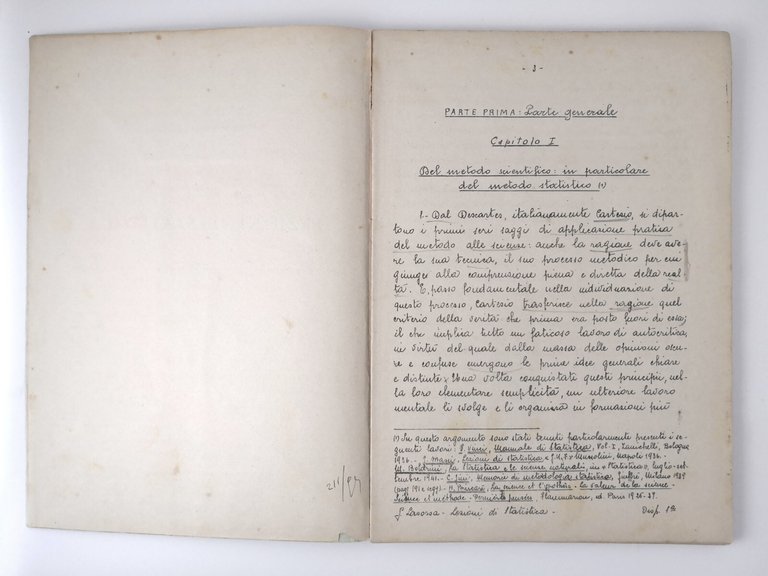 - 3 -
PARTE PRIMA: Parte generale
Capitolo I
Del metodo scientifico: in particolare
del metodo statistico (1)
1.- Dal Descartes, italianamente Cartesio, si dipar-
tono i primi seri saggi di applicazione pratica
del metodo alle scienze: anche la ragione deve ave-
re la sua tecnica, il suo processo metodico per cui
giunger alla comprensione piena e diretta della real
tà. E, passo fondamentale nella individuazione di
questo processo, Cartesio trasferisce nella ragione quel
criterio della verità che prima era posto fuori di essa;
il che implica tutto un faticoso lavoro di autocritica,
in virtù del quale dalla massa delle opinioni oscu-
re e confuse emergono le prime idee generali chiare
e distinte. Una volta conquistati questi principii, nel-
la loro elementare semplicità, un ulteriore lavoro
mentale li svolge e li organizza in formazioni più
(1) In questo argomento sono stati tenuti particolarmente presenti i se-
guenti lavori: Manuale di Statistica, Vol. I, Zanichelli, Bologna
1936. - Lezioni di statistica, Napoli 1936.
M. Boldrini, La Statistica e le scienze naturali, in "Statistica", luglio-set-
tembre 1941. - C. Gini, Memorie di metodologia statistica, Giuffrè, Milano 1939
La science et l'hypothèse - La valeur de la science -
Science et méthode - Dernières pensées, Flammarion, ed. Paris
Lavorsa - Lezioni di Statistica. Disp. 1ª
211/